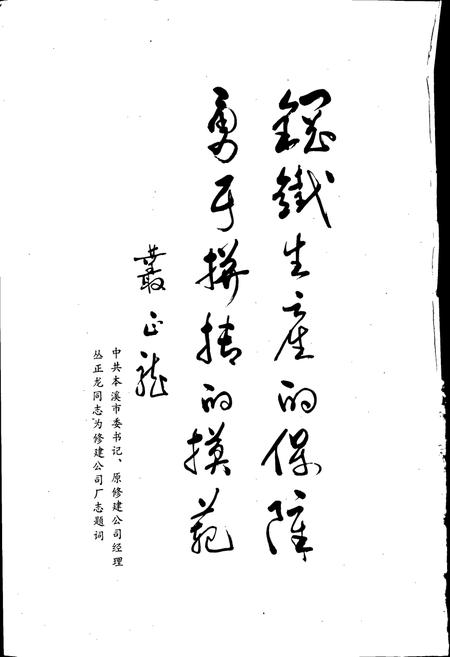 鋼鐵生產的保障
勇于拼搏的模范
叢正龍
中共本溪市委书记、原修建公司经理
丛正龙同志为修建公司厂志题词